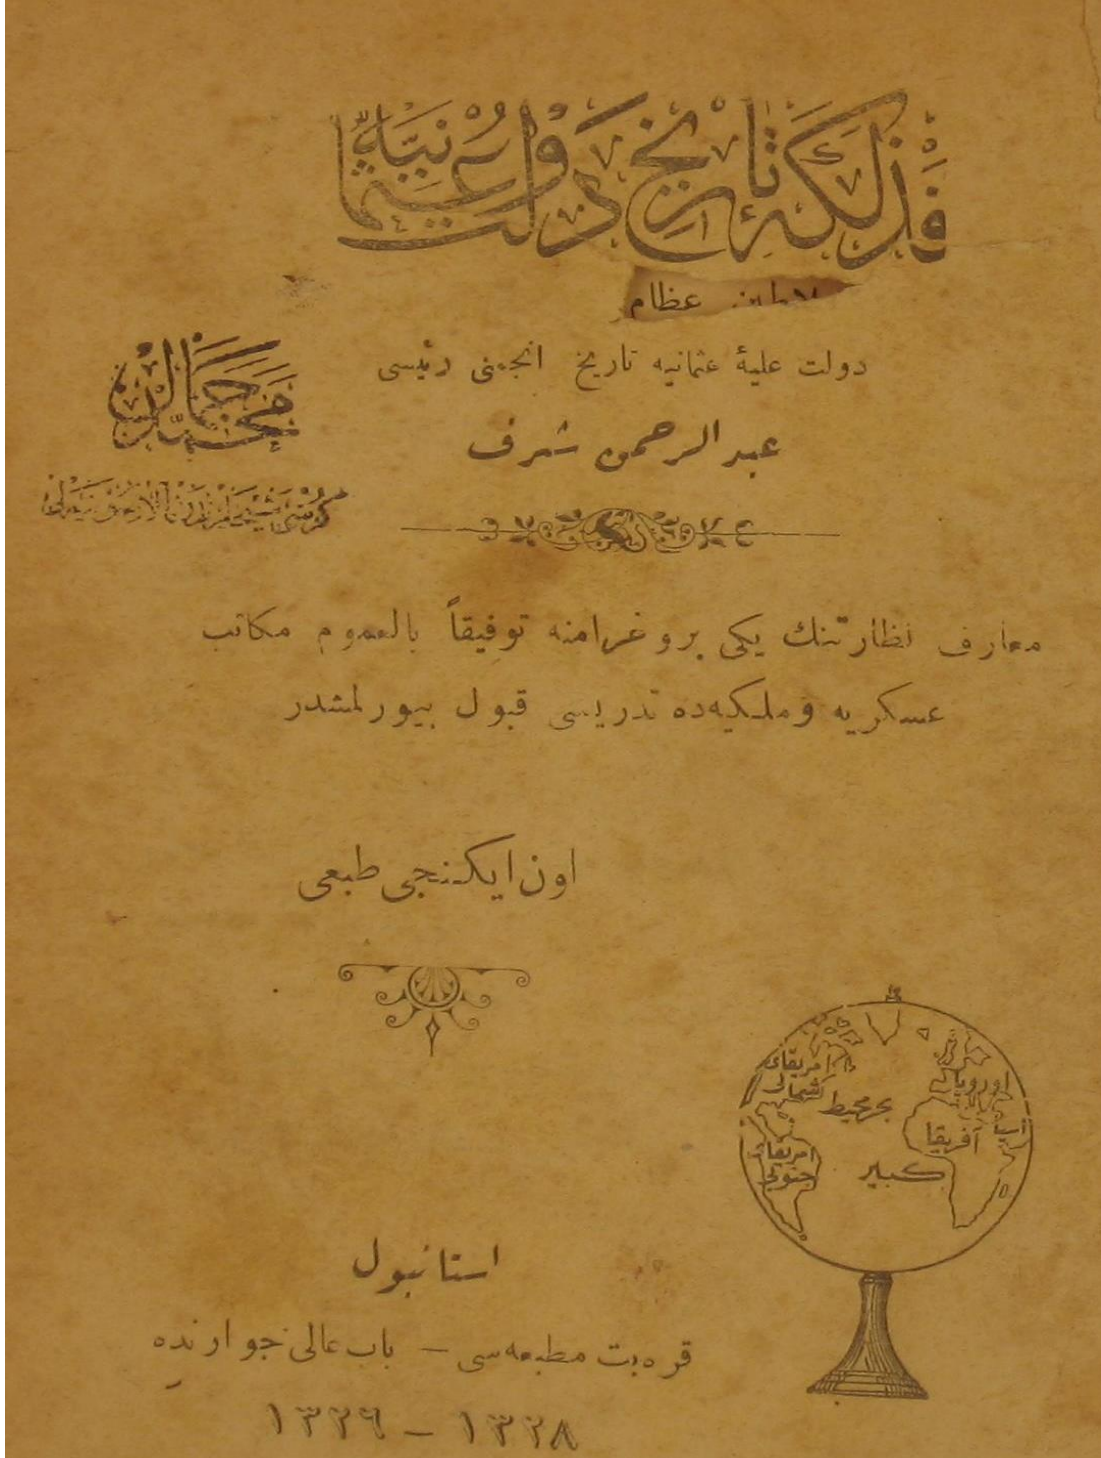 فذلكۀ تاريخ دولت عثمانيه
عظام
دولت عليۀ عثمانيه تاريخ انجمنى رئيسى
عبد الرحمن شرف
محمد جمال الدين
معارف نظارتنك يكى بروغرامنه توفيقاً بالعموم مكاتب
عسكريه وملكيه‌ده تدريسى قبول بيورلمشدر
اون ايكنجى طبعى
امريقاى شمالى
اوروپا
بحر محيط
آسيا
آفريقا
امريقاى جنوبى
كبير
استانبول
قره‌بت مطبعه‌سى — باب عالى جوارنده
١٣٢٦ — ١٣٢٨